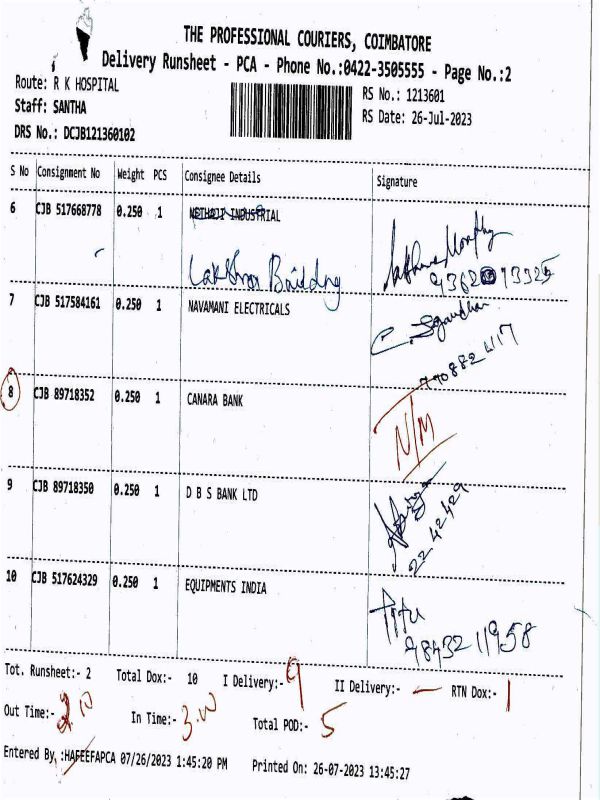 THE PROFESSIONAL COURIERS, COIMBATORE
Delivery Runsheet - PCA - Phone No.:0422-3505555 - Page No.:2
Route: R K HOSPITAL
RS No.: 1213601
Staff: SANTHA
RS Date: 26-Jul-2023
DRS No.: DCJB121360102
S No Consignment No Weight PCS Consignee Details Signature
6 CJB 517668778 0.250 1
Building
7 CJB 517584161 0.250 1 NAVAMANI ELECTRICALS
8 CJB 89718352 0.250 1 CANARA BANK
N/M
9 CJB 89718350 0.250 1 D B S BANK LTD
2242429
10 CJB 517624329 0.250 1 EQUIPMENTS INDIA
98432 11958
Tot. Runsheet:- 2 Total Dox:- 10 I Delivery:- 9 II Delivery:- — RTN Dox:- 1
Out Time:- In Time:- 3.00 Total POD:- 5
Entered By :HAFEEFAPCA 07/26/2023 1:45:20 PM Printed On: 26-07-2023 13:45:27